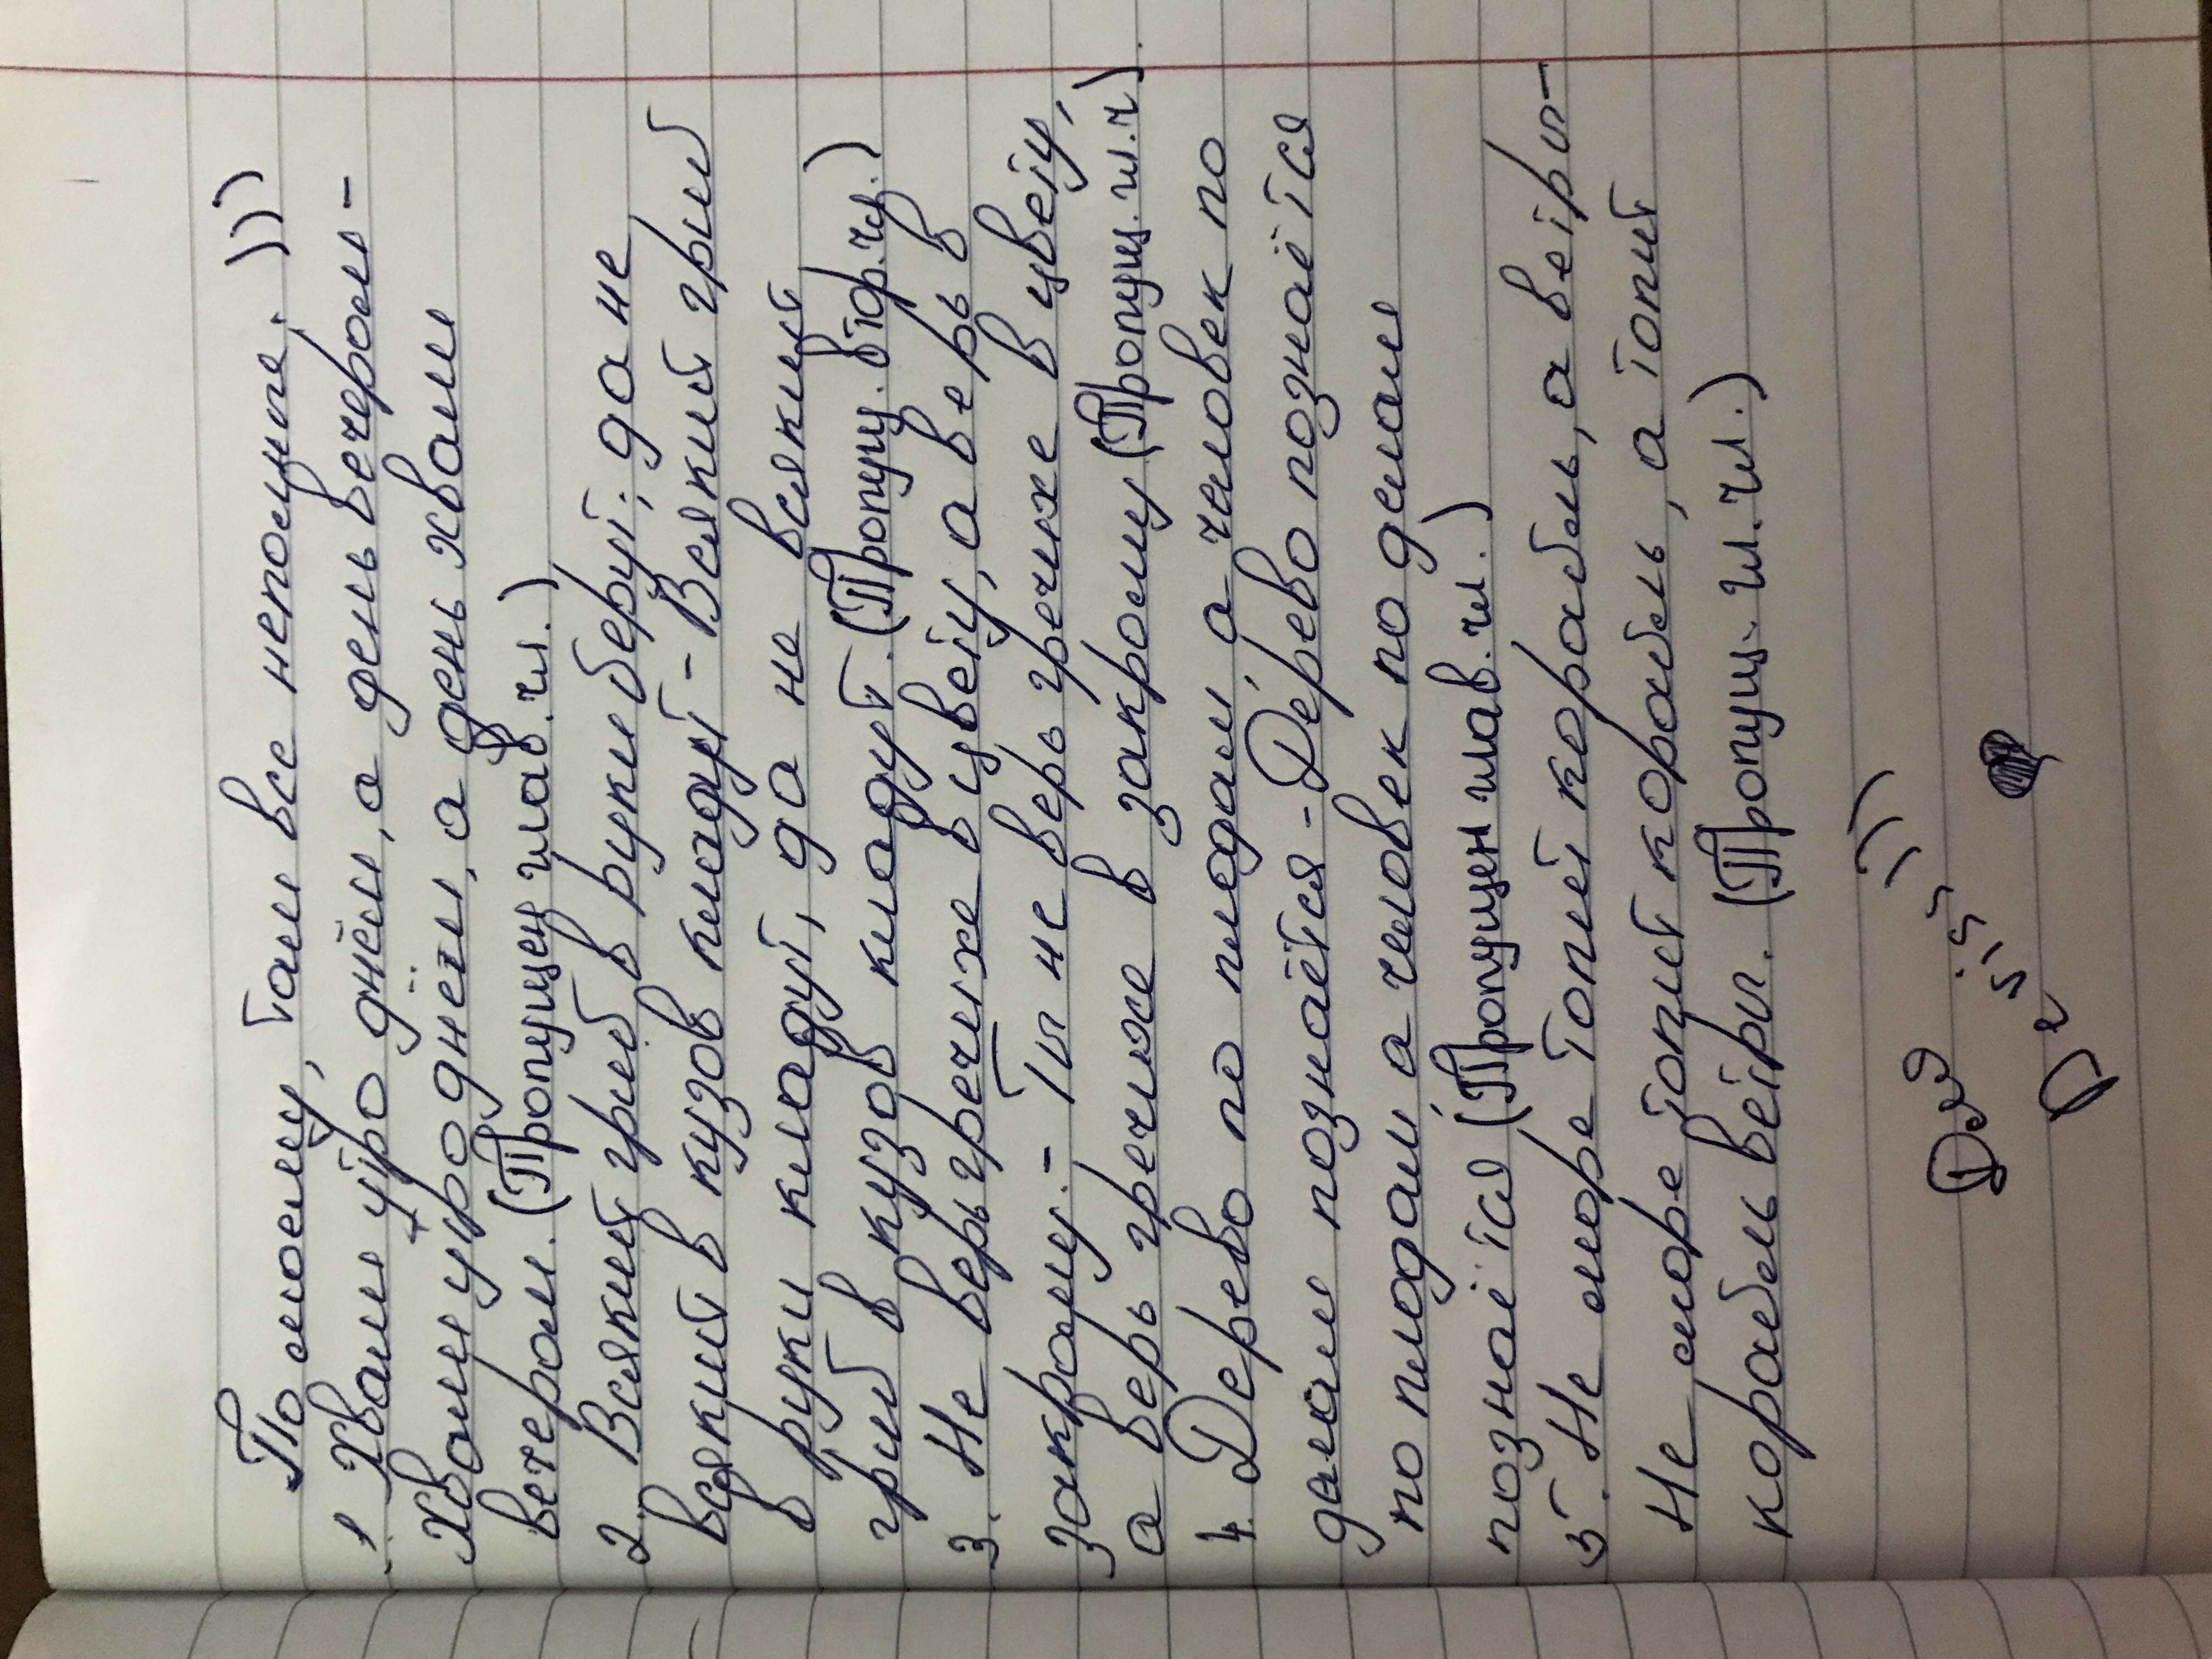 По моему, там все неполные. ))
1. Хвали утро днём, а день вечером -
Хвали утро днём, а день хвали
вечером. (Пропущен глав.чл.)
2. Всякий гриб в руки берут, да не
всякий в кузов кладут - Всякий гриб
в руки кладут, да не всякий
гриб в кузов кладут. (Пропущ. втор.чл.)
3. Не верь гречихе в цвету, а верь в
закрому. - Ты не верь гречихе в цвету,
а верь гречихе в закрому (Пропущ.гл.ч).
4. Дерево по плодам, а человек по
делам познаётся - Дерево познаётся
по плодам, а человек по делам
познаётся (Пропущен глав.чл.)
5. Не море топит корабль, а ветры -
Не море топит корабль, а топит
корабль ветры. (Пропущ. гл.чл.)